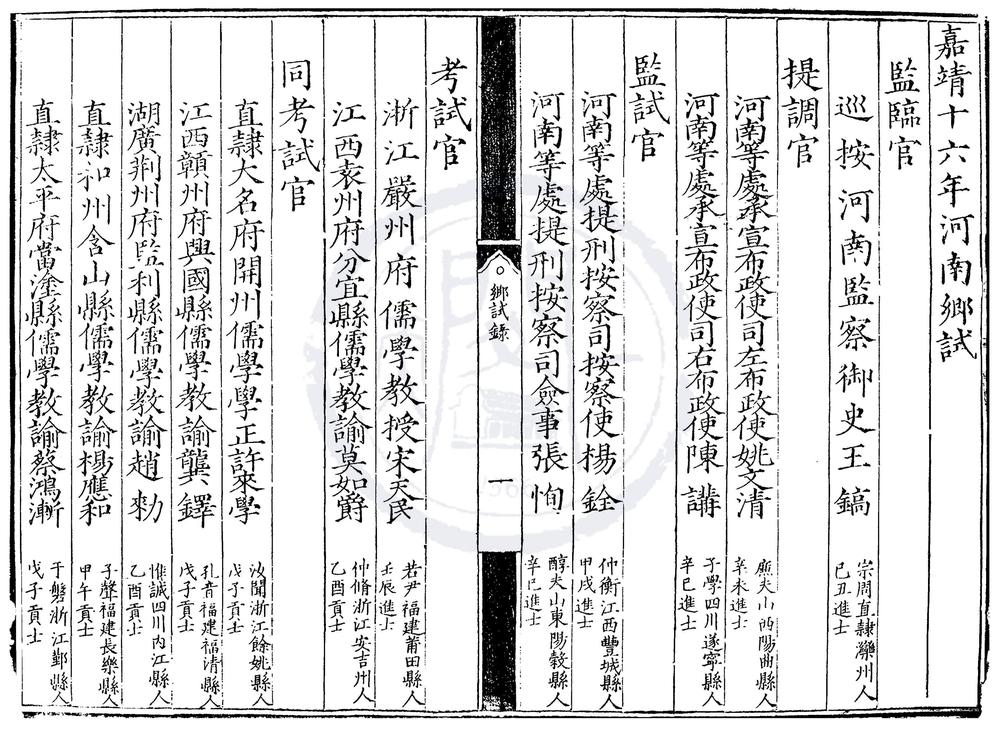 嘉靖十六年河南鄉試
監臨官
巡按河南監察御史王鎬
宗周直隸灤州人
己丑進士
提調官
河南等處承宣布政使司左布政使姚文清
廉夫山西陽曲縣人
辛未進士
河南等處承宣布政使司右布政使陳講
子學四川遂寧縣人
辛巳進士
監試官
河南等處提刑按察司按察使楊銓
仲衡江西豐城縣人
甲戌進士
河南等處提刑按察司僉事張恂
醇夫山東陽穀縣人
辛巳進士
鄉試錄
一
考試官
浙江嚴州府儒學教授宋天民
若尹福建莆田縣人
壬辰進士
江西袁州府分宜縣儒學教諭莫如爵
仲脩浙江安吉州人
乙酉貢士
同考試官
直隸大名府開州儒學學正許來學
汝聞浙江餘姚縣人
戊子貢士
江西贛州府興國縣儒學教諭龔鐸
孔音福建福清縣人
戊子貢士
湖廣荊州府監利縣儒學教諭趙勑
惟誠四川內江縣人
乙酉貢士
直隸和州含山縣儒學教諭楊應和
子聲福建長樂縣人
甲午貢士
直隸太平府當塗縣儒學教諭蔡鴻漸
于磐浙江鄞縣人
戊子貢士